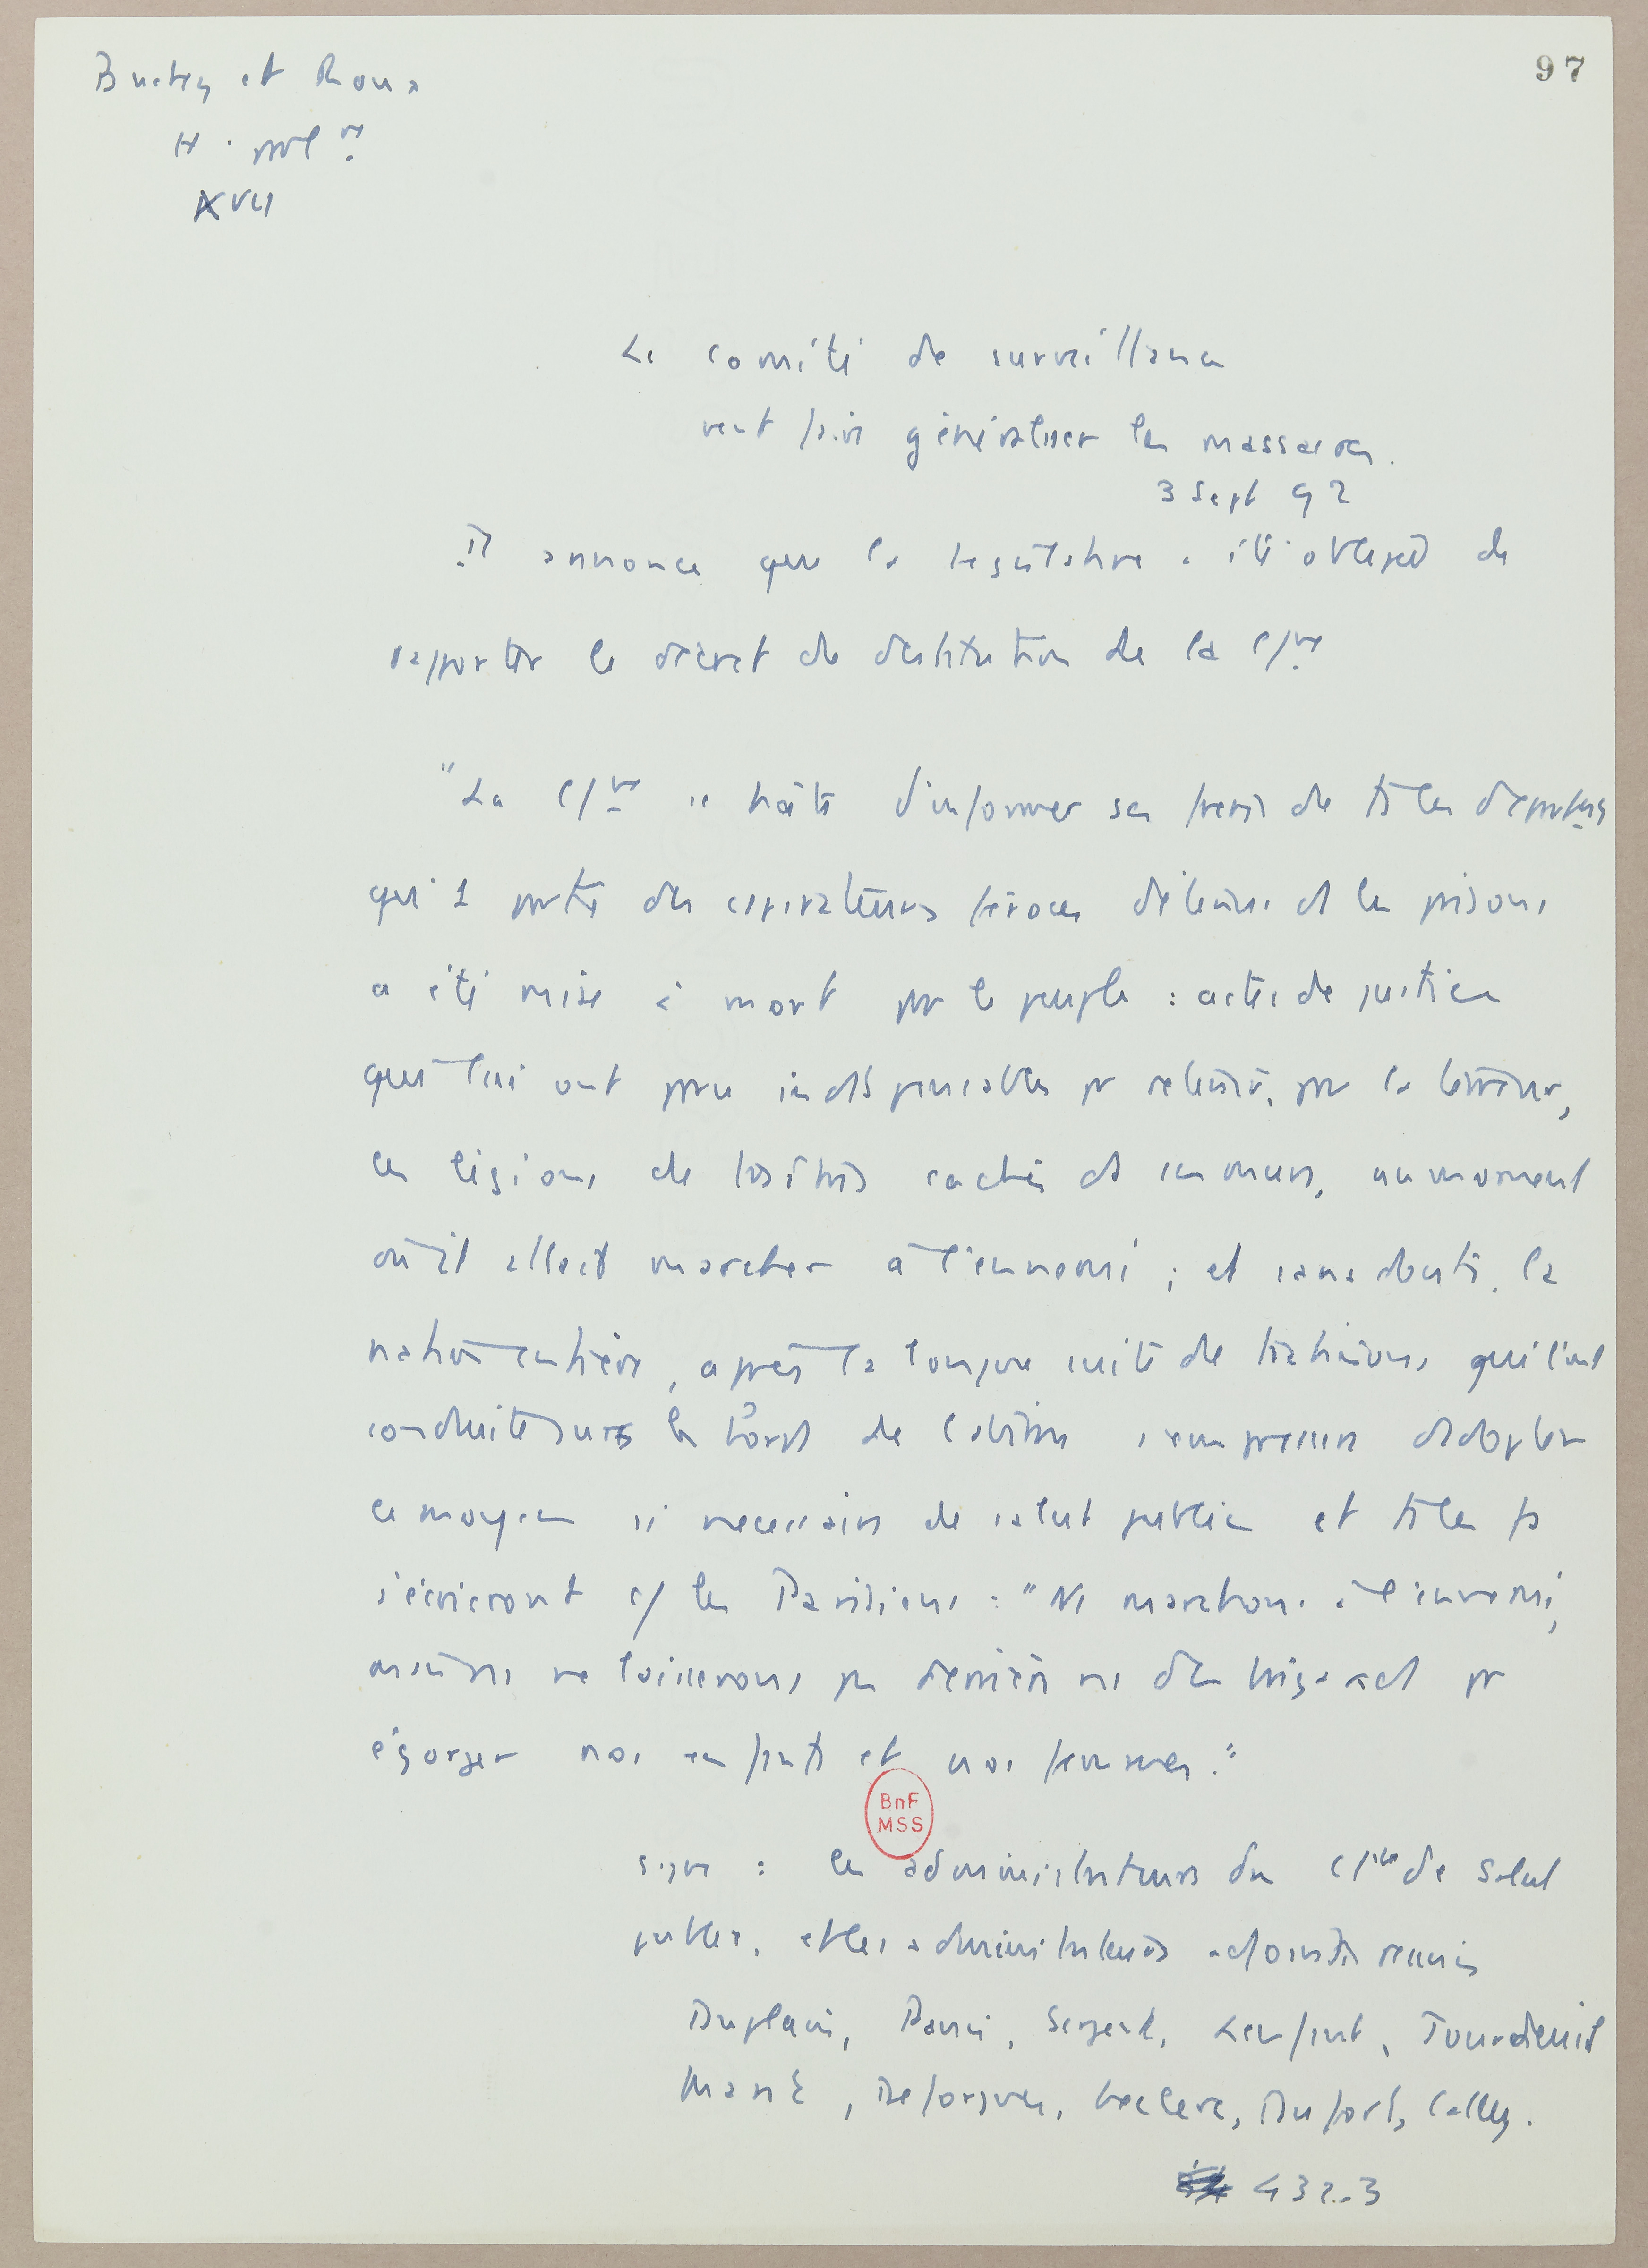 97
Buchez et Roux
H. parl re
XVII
Le comité de surveillance
veut faire généraliser les massacres.
3 Sept 92
Il annonce que la législative a été obligée de
rapporter le décret de destitution de la c/ne
"La c/ne se hâte d'informer ses frères de ts les départ ts
qu'1 partie des conspirateurs féroces détenus ds les prisons
a été mise à mort par le peuple : actes de justice
qui lui ont paru indispensables pr retenir, par la terreur,
ces légions de traîtres cachés ds ses murs, au moment
où il allait marcher à l'ennemi ; et sans doute, la
nation entière, après la longue suite de trahisons qui l'ont
conduite sur les bords de l'abîme s'empressera d'adopter
ce moyen si nécessaire de salut public et ts les fs
s'écrieront c/ les Parisiens : "Ns marchons à l'ennemi,
mais ns ne laisserons pas derrière ns des brigands pr
égorger nos enfants et nos femmes."
BnF
MSS
signé : les administrateurs du c/ité de Salut
public, et les administrateurs adjoints réunis
Duplain, Panis, Sergent, Lenfant, Jourdeuil
Marat, Deforgues, Leclerc, Dufort, Cally.
432-3